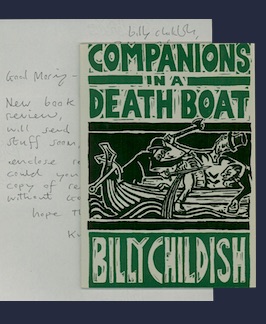 billy childish,
Good Morning -
New book
review,
will send
stuff soon,
enclose
could you
copy of re
without
hope th
K
COMPANIONS
IN A
DEATH BOAT
BILLY CHILDISH